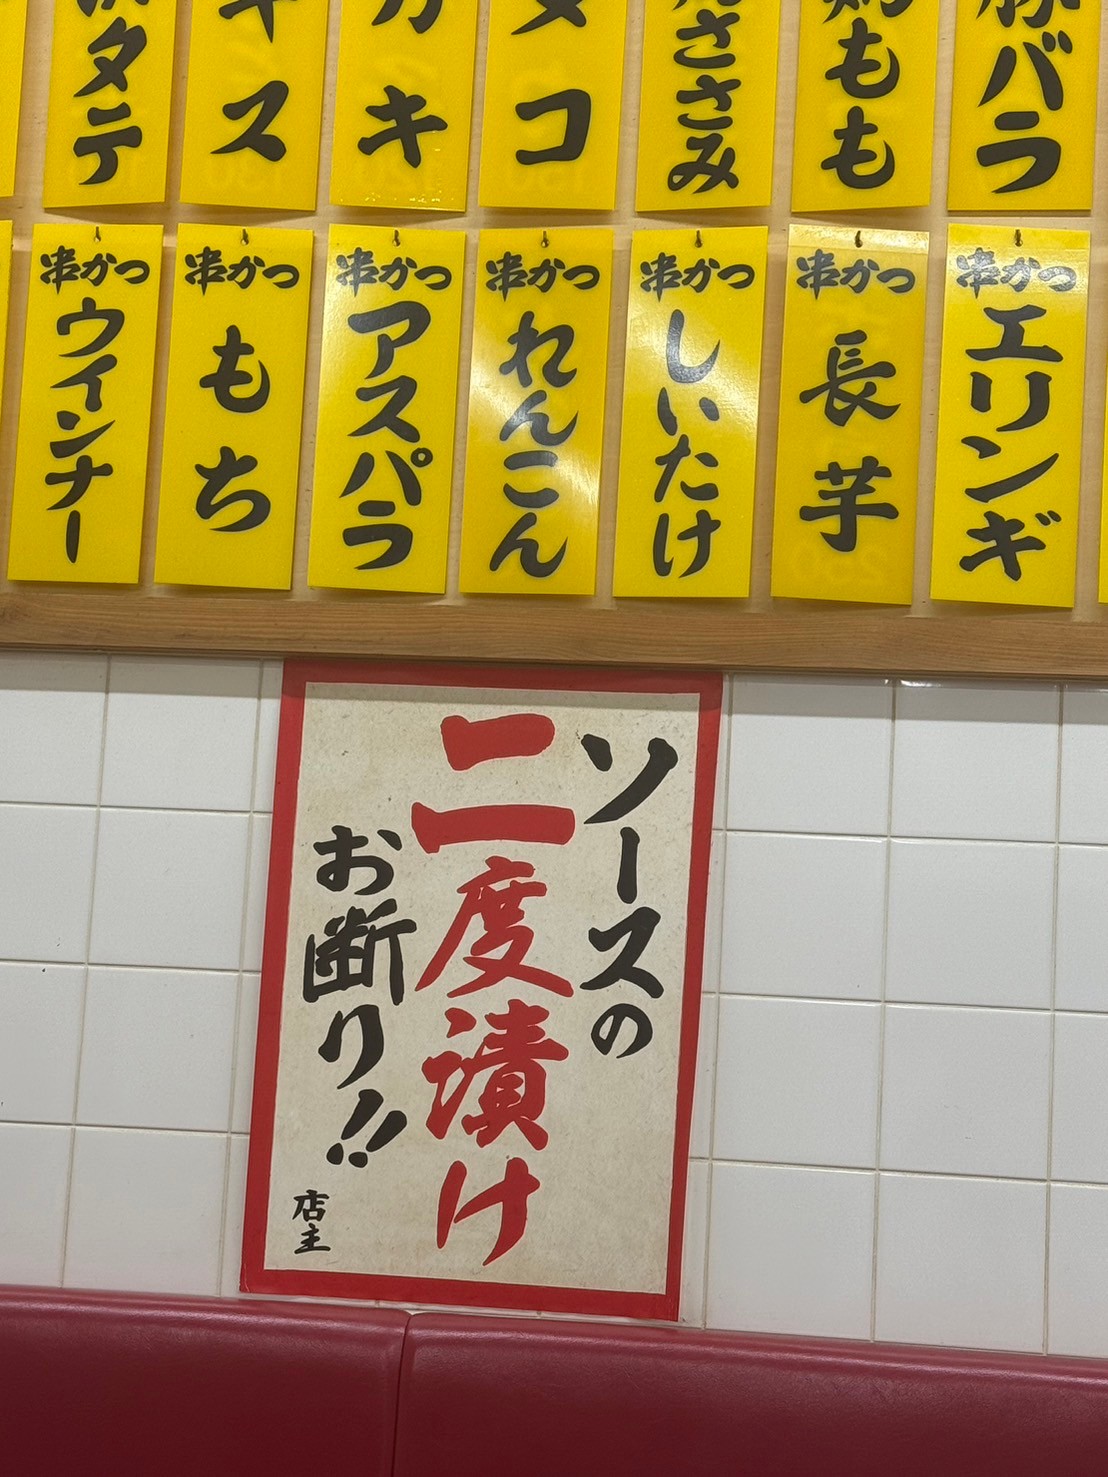 豚バラ
もも
ささみ
タコ
カキ
キス
タテ
串かつ
エリンギ
串かつ
長芋
串かつ
しいたけ
串かつ
れんこん
串かつ
アスパラ
串かつ
もち
串かつ
ウインナー
ソースの
二度漬け
お断り!!
店主